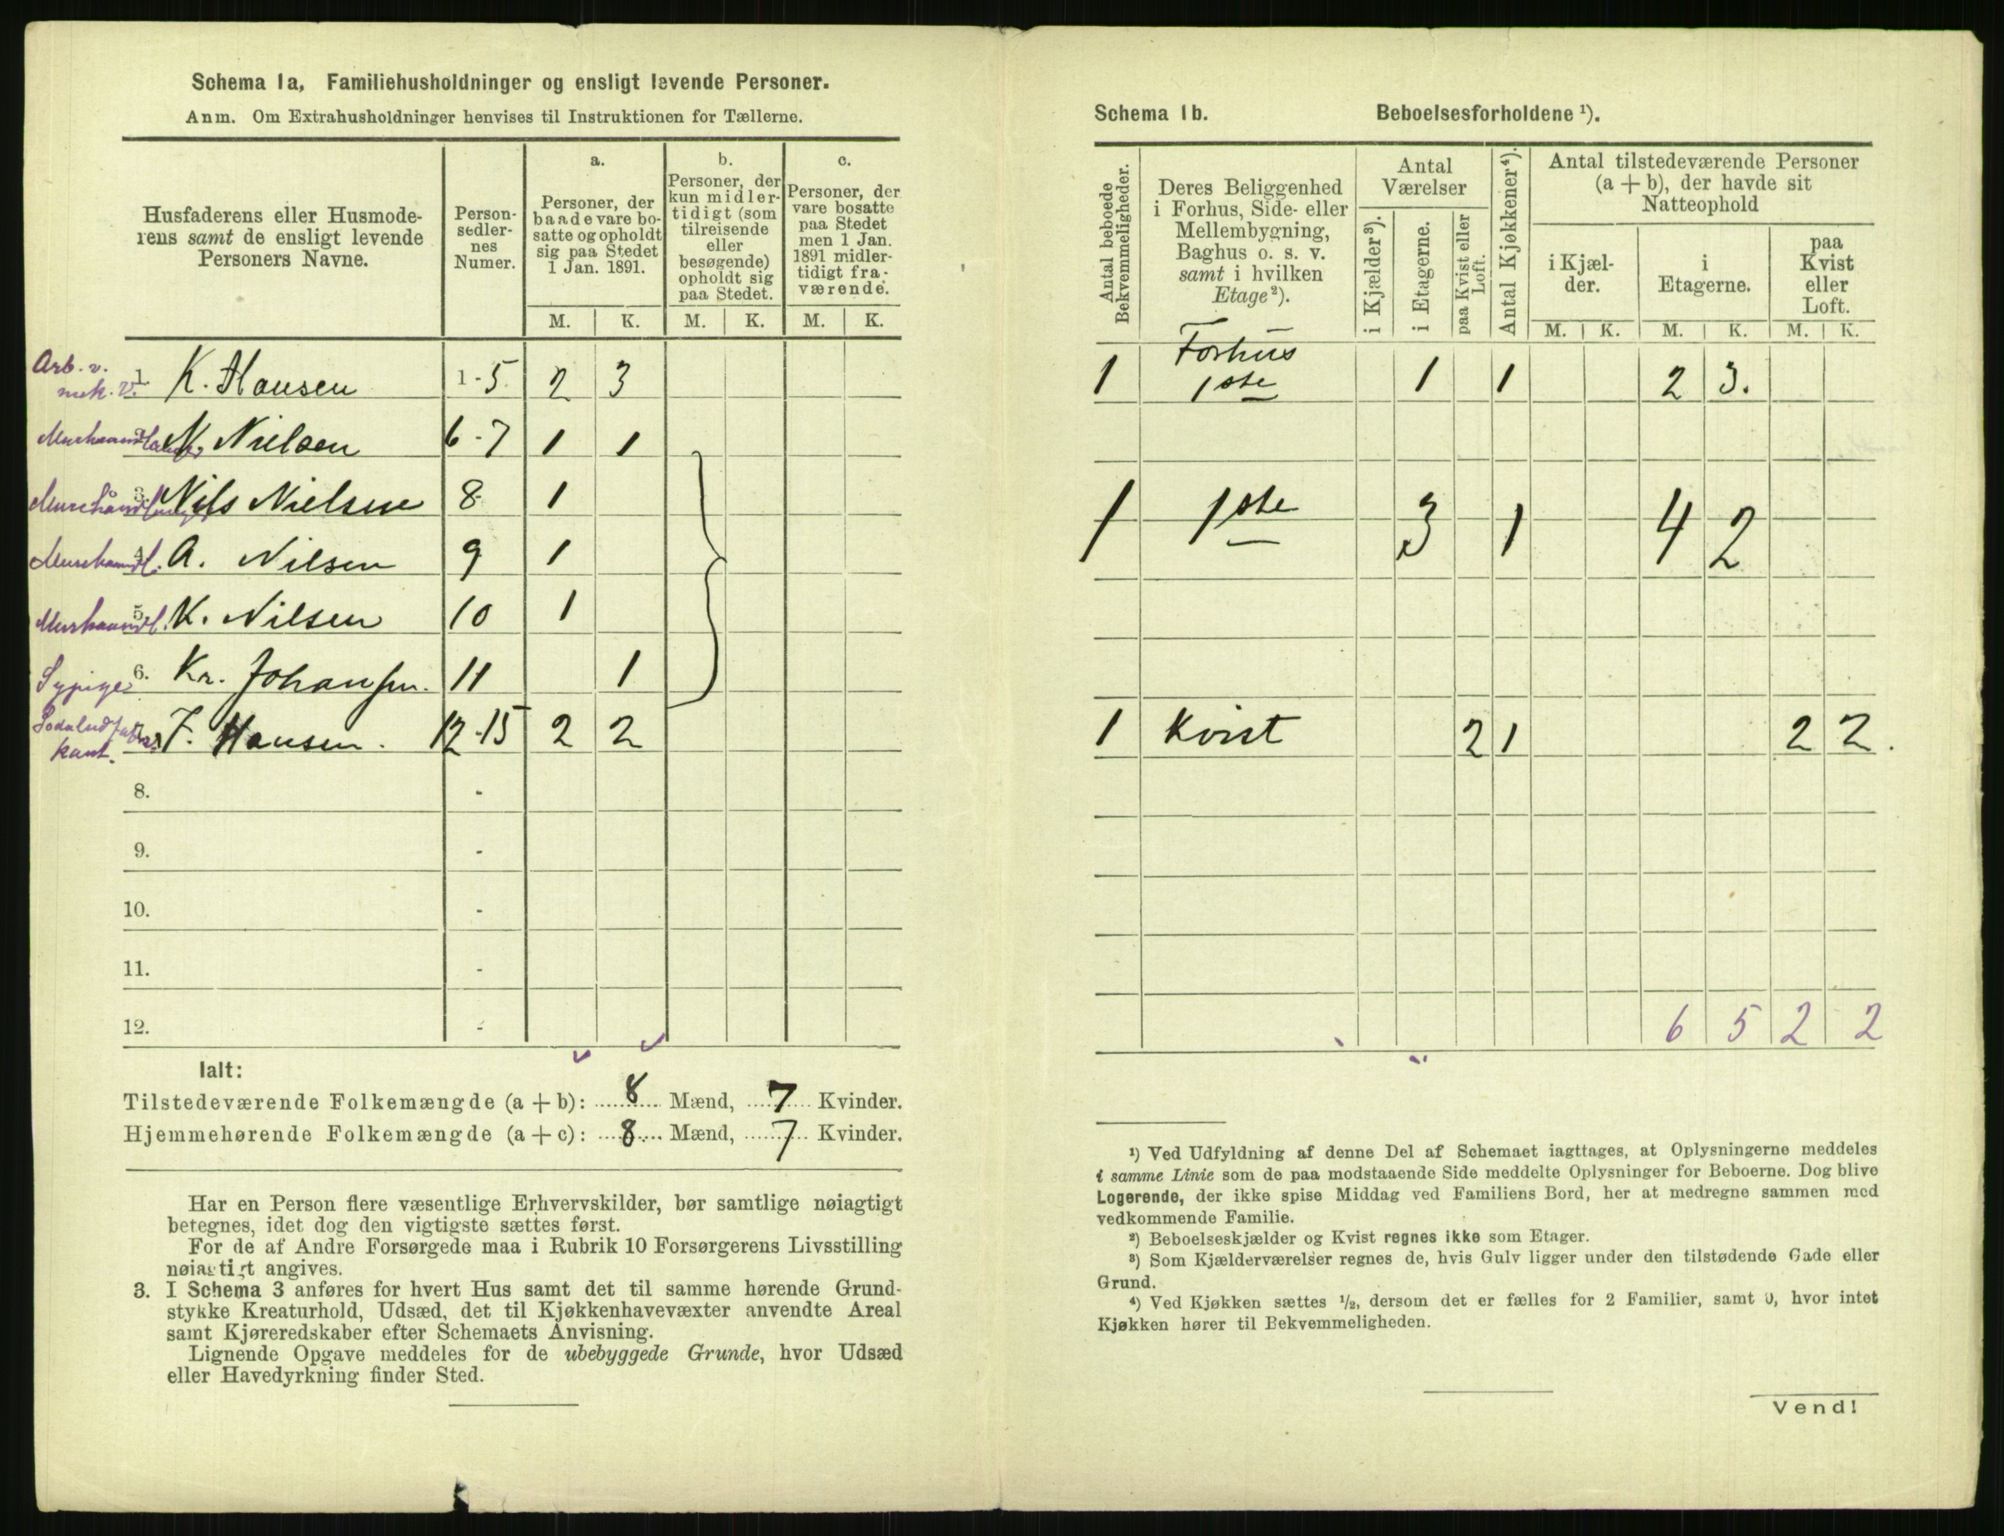 Schema 1a, Familiehusholdninger og ensligt levende Personer.
Anm. Om Extrahusholdninger henvises til Instruktionen for Tællerne.
Husfaderens eller Husmode-
rens samt de ensligt levende
Personers Navne.
Person-
sedler-
nes
Numer.
a.
Personer, der
baade vare bo-
satte og opholdt
sig paa Stedet
1 Jan. 1891.
b.
Personer, der
kun midler-
tidigt (som
tilreisende
eller
besøgende)
opholdt sig
paa Stedet.
c.
Personer, der
vare bosatte
paa Stedet
men 1 Jan.
1891 midler-
tidigt fra-
værende.
M. K. M. K. M. K.
Arb. v.
mek. V. 1. K. Hansen 1-5 2 3
2. N. Nielsen 6-7 1 1
3. Nils Nielsen 8- 1
Murhaandl. 4. A. Nilsen 9 1
Murhaandl. 5. K. Nilsen 10 1
Sypige 6. Kr. Johansen. 11 1
7. F. Hansen. 12-15 2 2
kant.
8. -
9. -
10. -
11. -
12. -
Ialt:
Tilstedeværende Folkemængde (a + b): 8 Mænd, 7 Kvinder.
Hjemmehørende Folkemængde (a + c): 8 Mænd, 7 Kvinder.
Har en Person flere væsentlige Erhvervskilder, bør samtlige nøiagtigt
betegnes, idet dog den vigtigste sættes først.
For de af Andre Forsørgede maa i Rubrik 10 Forsørgerens Livsstilling
nøiagtigt angives.
3. I Schema 3 anføres for hvert Hus samt det til samme hørende Grund-
stykke Kreaturhold, Udsæd, det til Kjøkkenhavevæxter anvendte Areal
samt Kjøreredskaber efter Schemaets Anvisning.
Lignende Opgave meddeles for de ubebyggede Grunde, hvor Udsæd
eller Havedyrkning finder Sted.
Schema 1b. Beboelsesforholdene ¹).
Antal beboede
Bekvemmeligheder.
Deres Beliggenhed
i Forhus, Side- eller
Mellembygning,
Baghus o. s. v.
samt i hvilken
Etage²).
Antal
Værelser
i Kjælder³).
i Etagerne.
paa Kvist eller
Loft.
Antal Kjøkkener⁴).
Antal tilstedeværende Personer
(a + b), der havde sit
Natteophold
i Kjæl-
der.
i
Etagerne.
paa
Kvist
eller
Loft.
M. K. M. K. M. K.
Forhus
1 1ste 1 1 2 3.
1 1ste 3 1 4 2
1 Kvist 2 1 2 2.
6 5 2 2
¹) Ved Udfyldning af denne Del af Schemaet iagttages, at Oplysningerne meddeles
i samme Linie som de paa modstaaende Side meddelte Oplysninger for Beboerne. Dog blive
Logerende, der ikke spise Middag ved Familiens Bord, her at medregne sammen med
vedkommende Familie.
²) Beboelseskjælder og Kvist regnes ikke som Etager.
³) Som Kjælderværelser regnes de, hvis Gulv ligger under den tilstødende Gade eller
Grund.
⁴) Ved Kjøkken sættes ½, dersom det er fælles for 2 Familier, samt 0, hvor intet
Kjøkken hører til Bekvemmeligheden.
Vend!